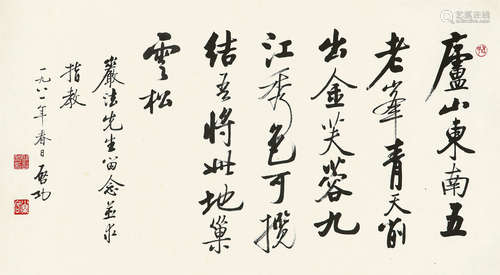 廬山東南五
老峯青天削
出金芙蓉九
江秀色可攬
結吾將此地巢
雲松
嚴法先生留念並求
指教
一九八一年春日啓功